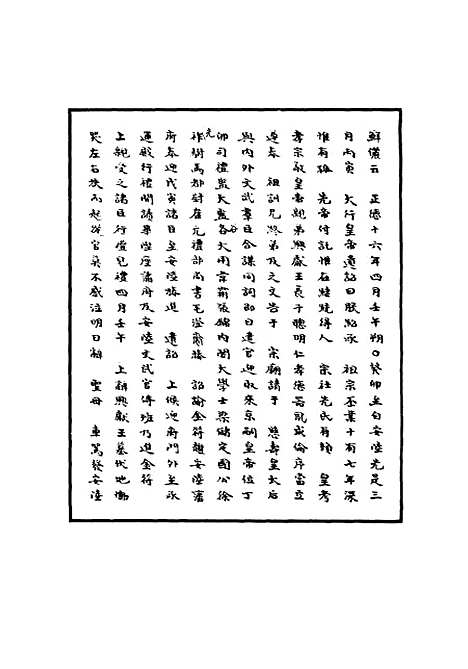 解儀云　正德十六年四月壬午朔○癸卯至自安陸先是三
月丙寅　大行皇帝遺詔曰朕紹承　祖宗丕業十有七年深
惟有孤　先帝付託惟在繼統得人　宗社先民有賴　皇考
孝宗敬皇帝親弟興獻王長子聰明仁孝德器夙成倫序當立
遵奉　祖訓兄終弟及之文告于　宗廟請于　慈壽皇太后
與內外文武羣臣合謀同詞即日遣官迎取來京嗣皇帝位丁
卯司禮監太監谷大用韋霦張錦內閣大學士梁儲定國公徐
光祚駙馬都尉崔元禮部尚書毛澄齎捧　詔諭金符趨安陸藩
府奉迎戊寅諸臣至安陸旅進　遺詔　上候迎府門外至承
運殿行禮開讀畢陞座藩府及安陸文武官侍班乃進金符
上親受之諸臣行禮見禮四月壬午　上辭興獻王墓伏地慟
哭左右扶而起從官莫不感泣明日辭　聖母　車駕發安陸